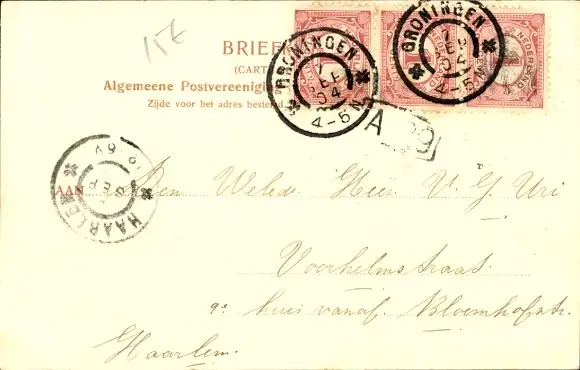 15c
BRIEF
(CART
Algemeene Postvereeniging
Zijde voor het adres bestemd
GRONINGEN
7 SEP 04
4-5 N
GRONINGEN
7 SEP 04
4-5 N
NEDERLAND
A
HAARLEM
SEP
AAN Den Weled. Heer V. G. Uri
Voorhelmstraat
9e huis vanaf Bloemhofstr.
Haarlem.